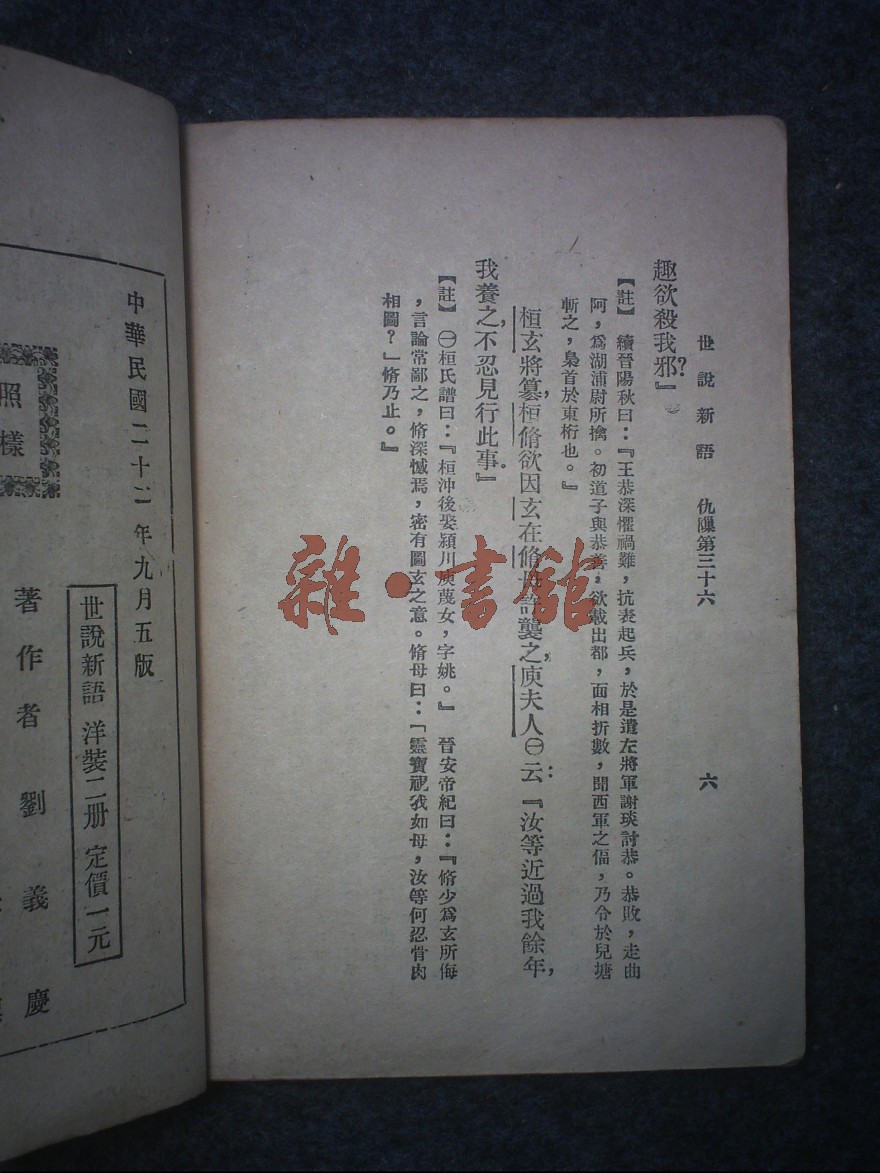 世說新語 仇隟第三十六 六
趣欲殺我邪?』
【註】 續晉陽秋曰:『王恭深懼禍難,抗表起兵,於是遣左將軍謝琰討恭。恭敗,走曲
阿,爲湖浦尉所擒。初道子與恭善,欲載出都,面相折數,聞西軍之偪,乃令於兒塘
斬之,梟首於東桁也。』
桓玄將篡,桓脩欲因玄在脩母許襲之,庾夫人㊀云:『汝等近過我餘年,
我養之,不忍見行此事。』
【註】 ㊀桓氏譜曰:『桓沖後娶潁川庾蔑女,字姚。』 晉安帝紀曰:『脩少爲玄所侮
,言論常鄙之,脩深憾焉,密有圖玄之意。脩母曰:「靈寶視我如母,汝等何忍骨肉
相圖?」脩乃止。』
雜·書館
中華民國二十二年九月五版
世說新語 洋裝二册 定價一元
著作者 劉義慶
照樣